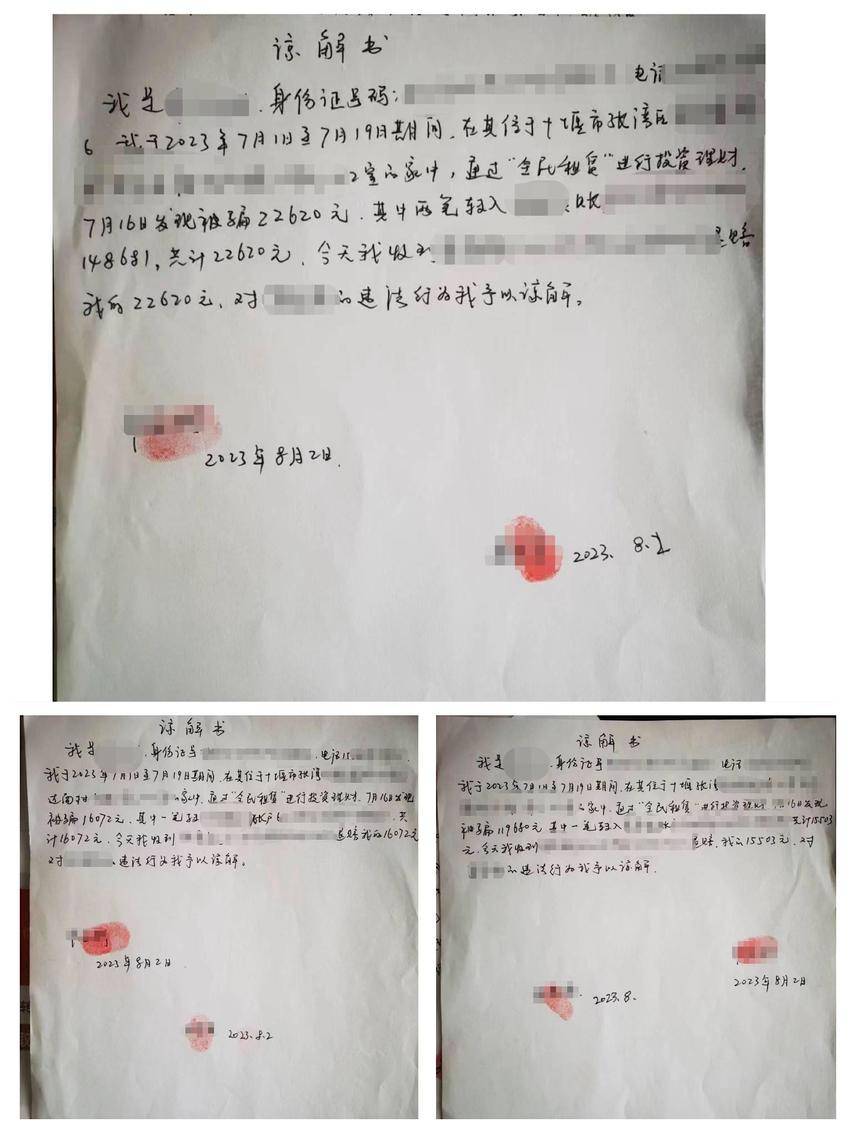 谅解书
我是 身份证号码: 电话
6 我于2023年7月1日至7月19日期间,在其位于十堰市张湾区
2室的家中,通过"全民租赁"进行投资理财,
7月16日发现被骗22620元,其中两笔转入 账
148681,共计22620元,今天我收到 退赔
我的22620元,对 的违法行为我予以谅解。
2023年8月2日.
2023. 8.2
谅解书
我是 身份证号 电话15
我于2023年1月1日至7月19日期间,在其位于十堰市张湾
家中,通过"全民租赁"进行投资理财,7月16日发现
被骗16072元,其中一笔转 账户6 共
计16072元,今天我收到 退赔我的16072元
对 违法行为我予以谅解。
2023年8月2日
2023.8.2
谅解书
我是 身份证号 电话
我于2023年7月1日至7月19日期间,在其位于十堰张湾
家中,通过"全民租赁"进行投资理财, 16日发现
被骗119680元其中一笔转入 共计15503
元,今天我收到 退赔,我的15503元,对
的违法行为我予以谅解.
2023年8月2日
2023.8.